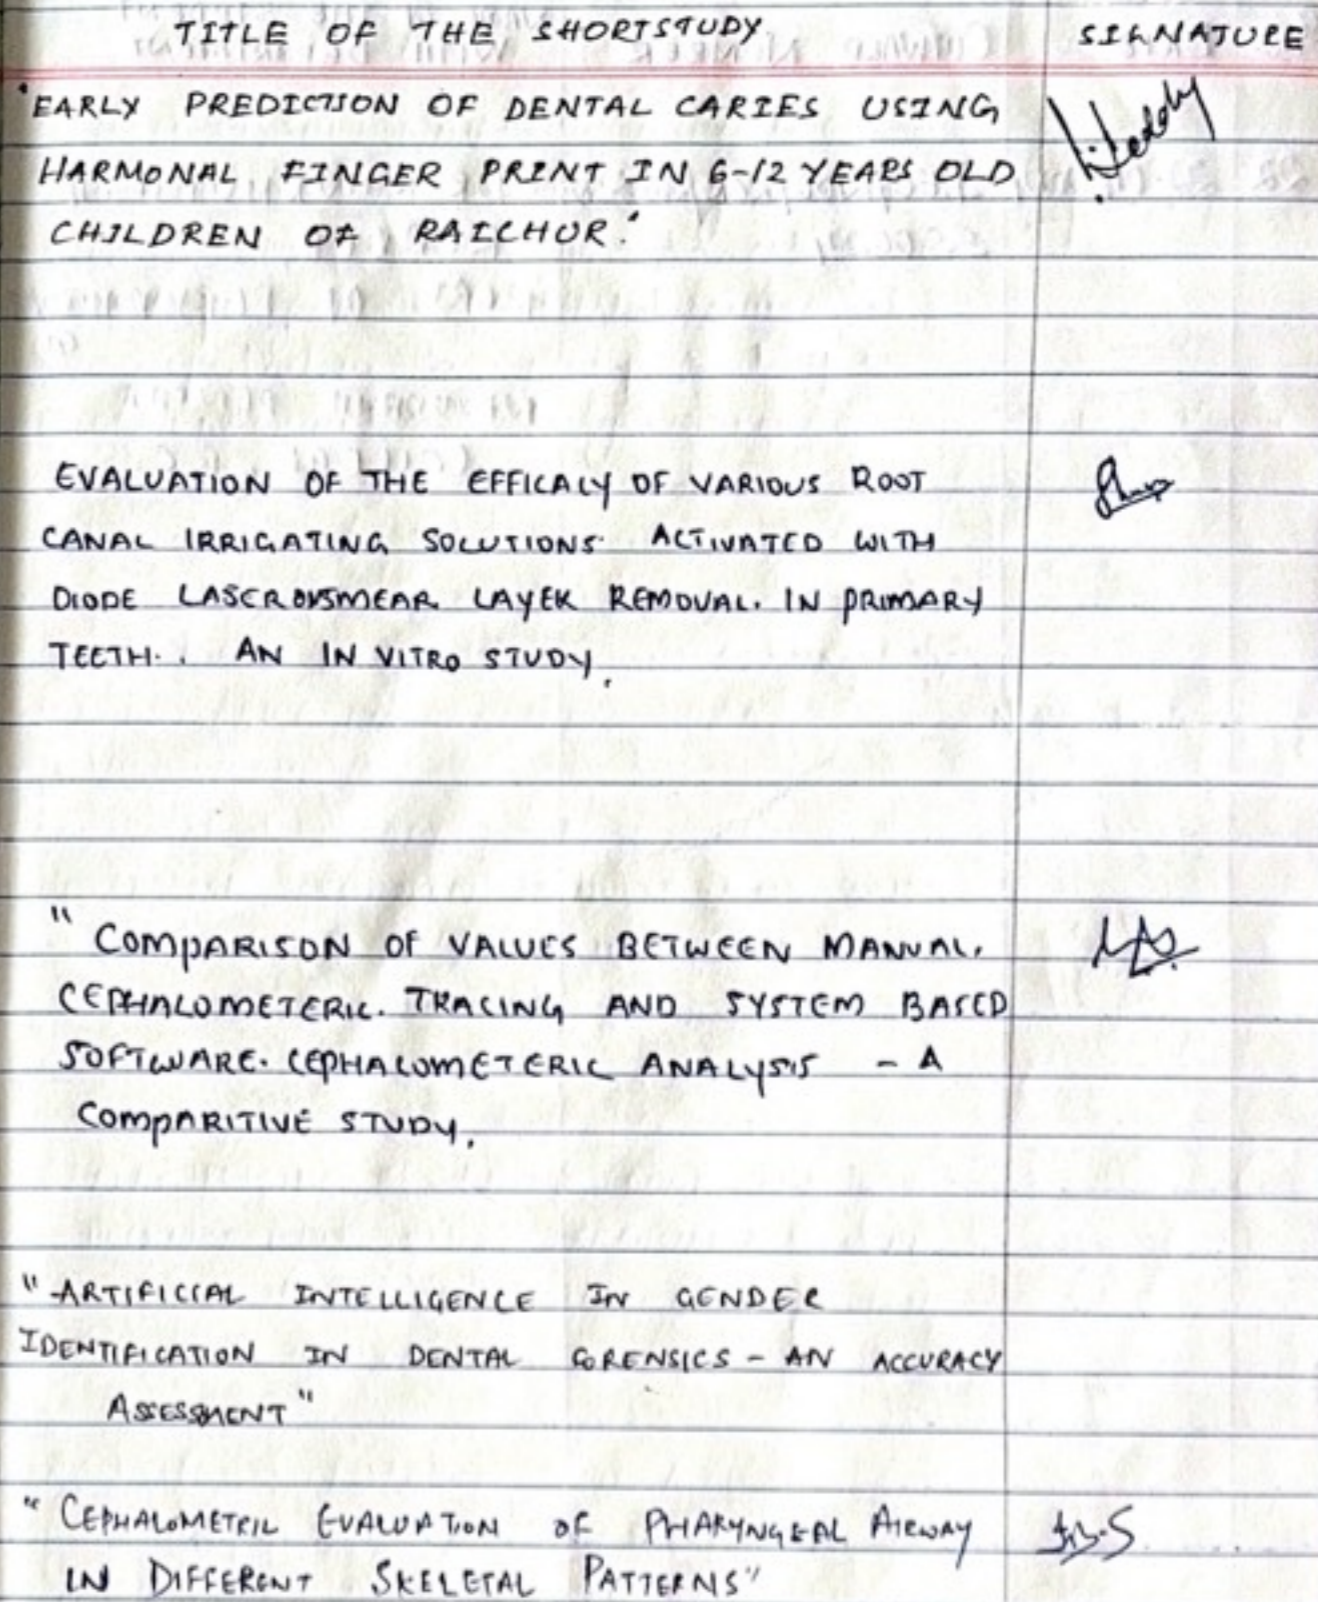 TITLE OF THE SHORTSTUDY SIGNATURE
"EARLY PREDICTION OF DENTAL CARIES USING
HARMONAL FINGER PRINT IN 6-12 YEARS OLD
CHILDREN OF RAICHUR."
EVALUATION OF THE EFFICACY OF VARIOUS ROOT
CANAL IRRIGATING SOLUTIONS ACTIVATED WITH
DIODE LASER ON SMEAR LAYER REMOVAL. IN PRIMARY
TEETH. . AN IN VITRO STUDY.
"COMPARISON OF VALUES BETWEEN MANUAL.
CEPHALOMETERIC. TRACING AND SYSTEM BASED
SOFTWARE. CEPHALOMETERIC ANALYSIS - A
COMPARITIVE STUDY.
"ARTIFICIAL INTELLIGENCE IN GENDER
IDENTIFICATION IN DENTAL FORENSICS - AN ACCURACY
ASSESSMENT"
"CEPHALOMETRIC EVALUATION OF PHARYNGEAL AIRWAY
IN DIFFERENT SKELETAL PATTERNS"